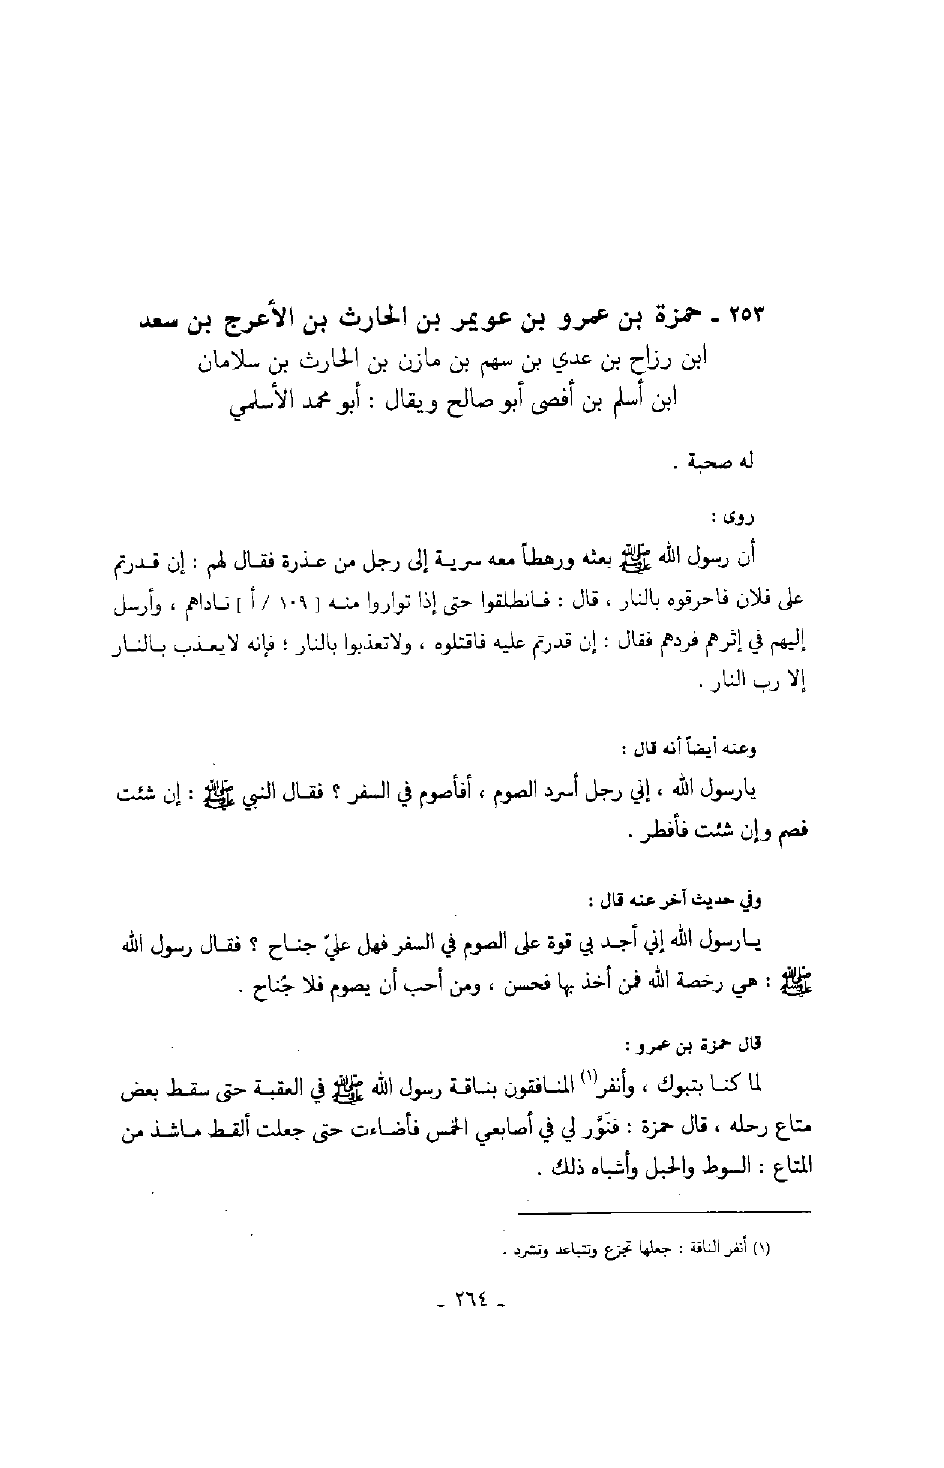 ٢٥٣ ـ حمزة بن عمرو بن عويمر بن الحارث بن الأعرج بن سعد
ابن رزاح بن عدي بن سهم بن مازن بن الحارث بن سلامان
ابن أسلم بن أفصى أبو صالح ويقال : أبو محمد الأسلمي
له صحبة .
روى :
أن رسول الله ﷺ بعثه ورهطاً معه سرية إلى رجل من عذرة فقال لهم : إن قدرتم
على فلان فاحرقوه بالنار ، قال : فانطلقوا حتى إذا تواروا منه [ ١٠٩ / أ ] ناداهم ، وأرسل
إليهم في إثرهم فردهم فقال : إن قدرتم عليه فاقتلوه ، ولاتعذبوا بالنار ؛ فإنه لايعذب بالنار
إلا رب النار .
وعنه أيضاً أنه قال :
يارسول الله ، إني رجل أسرد الصوم ، أفأصوم في السفر ؟ فقال النبي ﷺ : إن شئت
فصم وإن شئت فأفطر .
وفي حديث آخر عنه قال :
يارسول الله إني أجد بي قوة على الصوم في السفر فهل عليّ جناح ؟ فقال رسول الله
ﷺ : هي رخصة الله فمن أخذ بها فحسن ، ومن أحب أن يصوم فلا جُناح .
قال حمزة بن عمرو :
لما كنا بتبوك ، وأنفر(١) المنافقون بناقة رسول الله ﷺ في العقبة حتى سقط بعض
متاع رحله ، قال حمزة : فنَوَّر لي في أصابعي الخمس فأضاءت حتى جعلت ألقط ماشذ من
المتاع : السوط والحبل وأشباه ذلك .
(١) أنفر الناقة : جعلها تجزع وتتباعد وتشرد .
ـ ٢٦٤ ـ